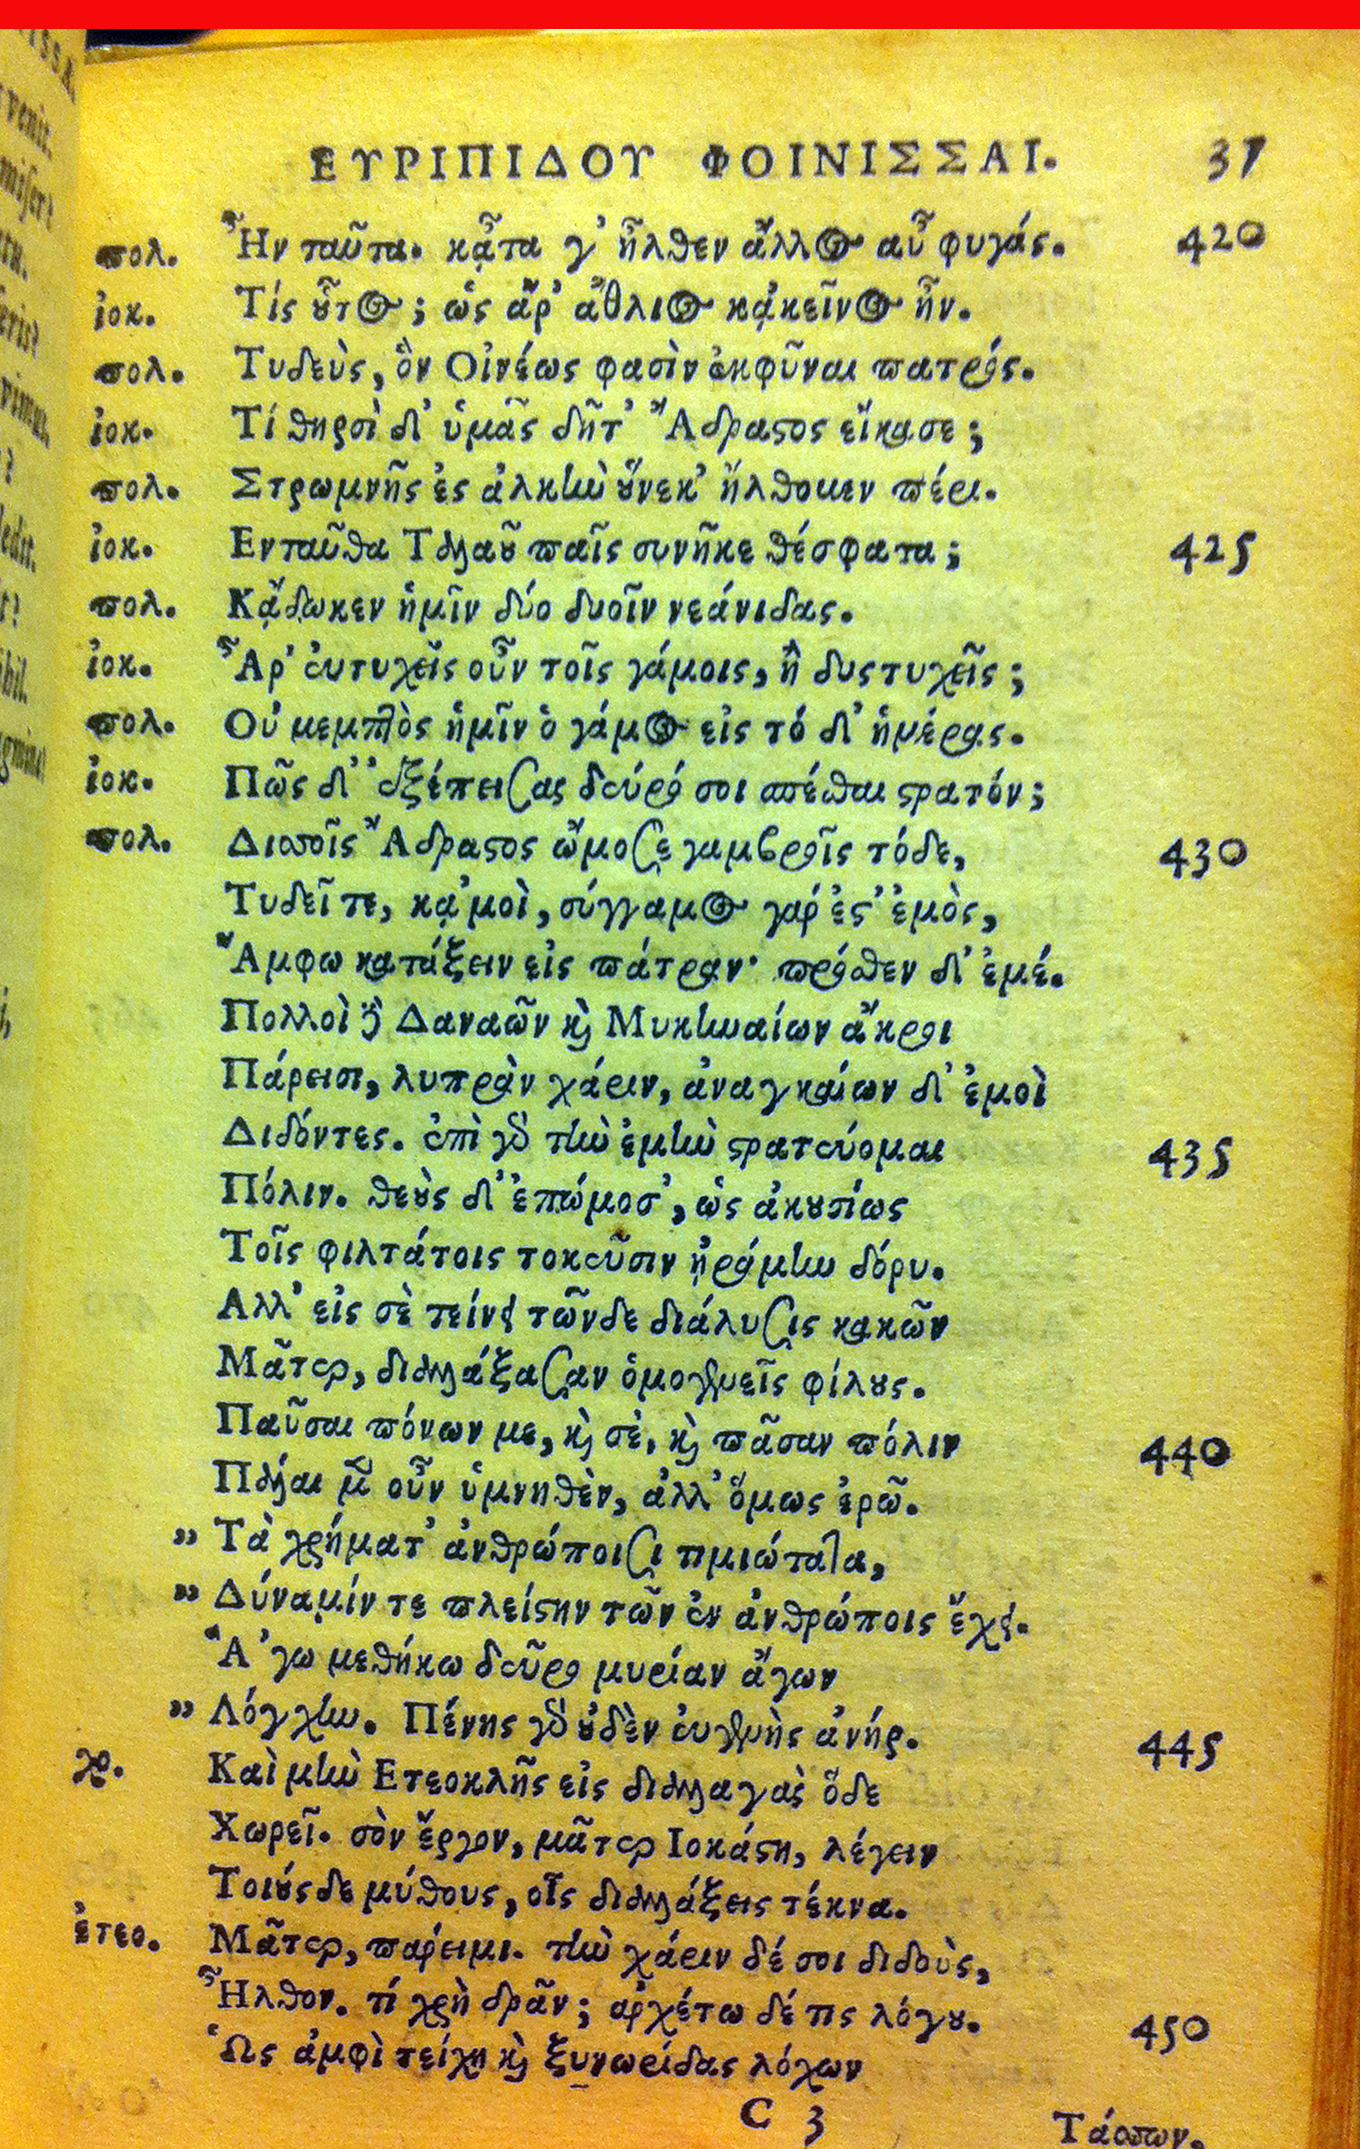 ΕΥΡΙΠΙΔΟΥ ΦΟΙΝΙΣΣΑΙ. 37
πολ. Ἦν ταῦτα. κᾆτα γ' ἦλθεν ἄλλος αὖ φυγάς. 420
ἰοκ. Τίς οὗτος; ὡς ἄρ' ἄθλιος κᾀκεῖνος ἦν.
πολ. Τυδεὺς, ὃν Οἰνέως φασὶν ἐκφῦναι πατρός.
ἰοκ. Τί θηρσὶ δ' ὑμᾶς δῆτ' Ἄδραστος εἴκασε;
πολ. Στρωμνῆς ἐς ἀλκὴν οὕνεκ' ἤλθομεν πέρι.
ἰοκ. Ενταῦθα Ταλαοῦ παῖς συνῆκε θέσφατα; 425
πολ. Κᾄδωκεν ἡμῖν δύο δυοῖν νεάνιδας.
ἰοκ. Ἆρ' εὐτυχεῖς οὖν τοῖς γάμοις, ἢ δυςτυχεῖς;
πολ. Οὐ μεμπτὸς ἡμῖν ὁ γάμος εἰς τό δ' ἡμέρας.
ἰοκ. Πῶς δ' ἐξέπεισας δεύρό σοι σπέσθαι στρατόν;
πολ. Δισσοῖς Ἄδραστος ὤμοσε γαμβροῖς τόδε, 430
Τυδεῖ τε, κᾀμοὶ, σύγγαμος γάρ ἐστ' ἐμὸς,
Ἄμφω κατάξειν εἰς πάτραν· πρόσθεν δ' ἐμέ.
Πολλοὶ δὲ Δαναῶν καὶ Μυκηναίων ἄκροι
Πάρεισι, λυπρὰν χάριν, ἀναγκαίων δ' ἐμοὶ
Διδόντες. ἐπὶ γὰρ τὴν ἐμὴν στρατεύομαι 435
Πόλιν. θεοὺς δ' ἐπώμοσ', ὡς ἀκουσίως
Τοῖς φιλτάτοις τοκεῦσιν ᾐράμην δόρυ.
Αλλ' εἰς σὲ τείνει τῶνδε διάλυσις κακῶν
Μᾶτερ, διαλλάξασαν ὁμογενεῖς φίλους.
Παῦσαι πόνων με, καὶ σὲ, καὶ πᾶσαν πόλιν 440
Πάλαι μὲν οὖν ὑμνηθὲν, ἀλλ' ὅμως ἐρῶ.
" Τὰ χρήματ' ἀνθρώποισι τιμιώτατα,
" Δύναμίν τε πλείστην τῶν ἐν ἀνθρώποις ἔχει.
Ἃ 'γω μεθήκω δεῦρο μυρίαν ἄγων
" Λόγχην. Πένης γὰρ οὐδὲν εὐγενὴς ἀνήρ. 445
χο. Καὶ μὴν Ετεοκλῆς εἰς διαλλαγὰς ὅδε
Χωρεῖ. σὸν ἔργον, μᾶτερ Ιοκάστη, λέγειν
Τοιούςδε μύθους, οἷς διαλλάξεις τέκνα.
ἐτεο. Μᾶτερ, πάρειμι. τὴν χάριν δέ σοι διδοὺς,
Ἦλθον. τί χρὴ δρᾶν; ἀρχέτω δέ τις λόγου. 450
Ὡς ἀμφὶ τείχη καὶ ξυνωρίδας λόχων
C 3 Τάσσων.